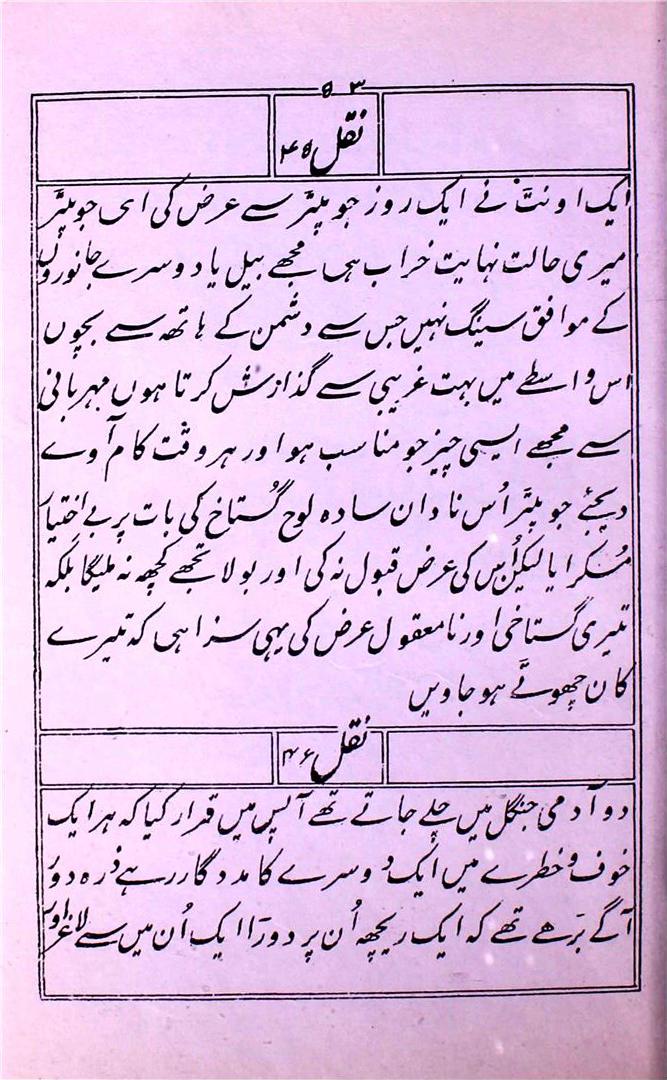 ۵۳
نقل ۴۵
ایک اونٹ نے ایک روز جوپیٹر سے عرض کی ای جوپیٹر
میری حالت نہایت خراب ہی مجھے بیل یا دوسرے جانوروں
کے موافق سینگ نہیں جس سے دشمن کے ہاتھ سے بچوں
اس واسطے میں بہت غریبی سے گذارش کرتا ہوں مہربانی
سے مجھے ایسی چیز جو مناسب ہو اور ہر وقت کام آوے
دیجئے جوپیٹر اُس نادان سادہ لوح گُستاخ کی بات پر بے اختیار
مُسکرایا لیکن اُس کی عرض قبول نہ کی اور بولا تجھے کچھ نہ ملیگا بلکہ
تیری گستاخی اور نامعقول عرض کی یہی سزا ہی کہ تیرے
کان چھوٹے ہو جاویں
نقل ۴۶
دو آدمی جنگل میں چلے جاتے تھے آپس میں قرار کیا کہ ہر ایک
خوف و خطرے میں ایک دوسرے کا مددگار رہے ذرہ دور
آگے بڑھے تھے کہ ایک ریچھ اُن پر دوڑا ایک اُن میں سے لاغر اور